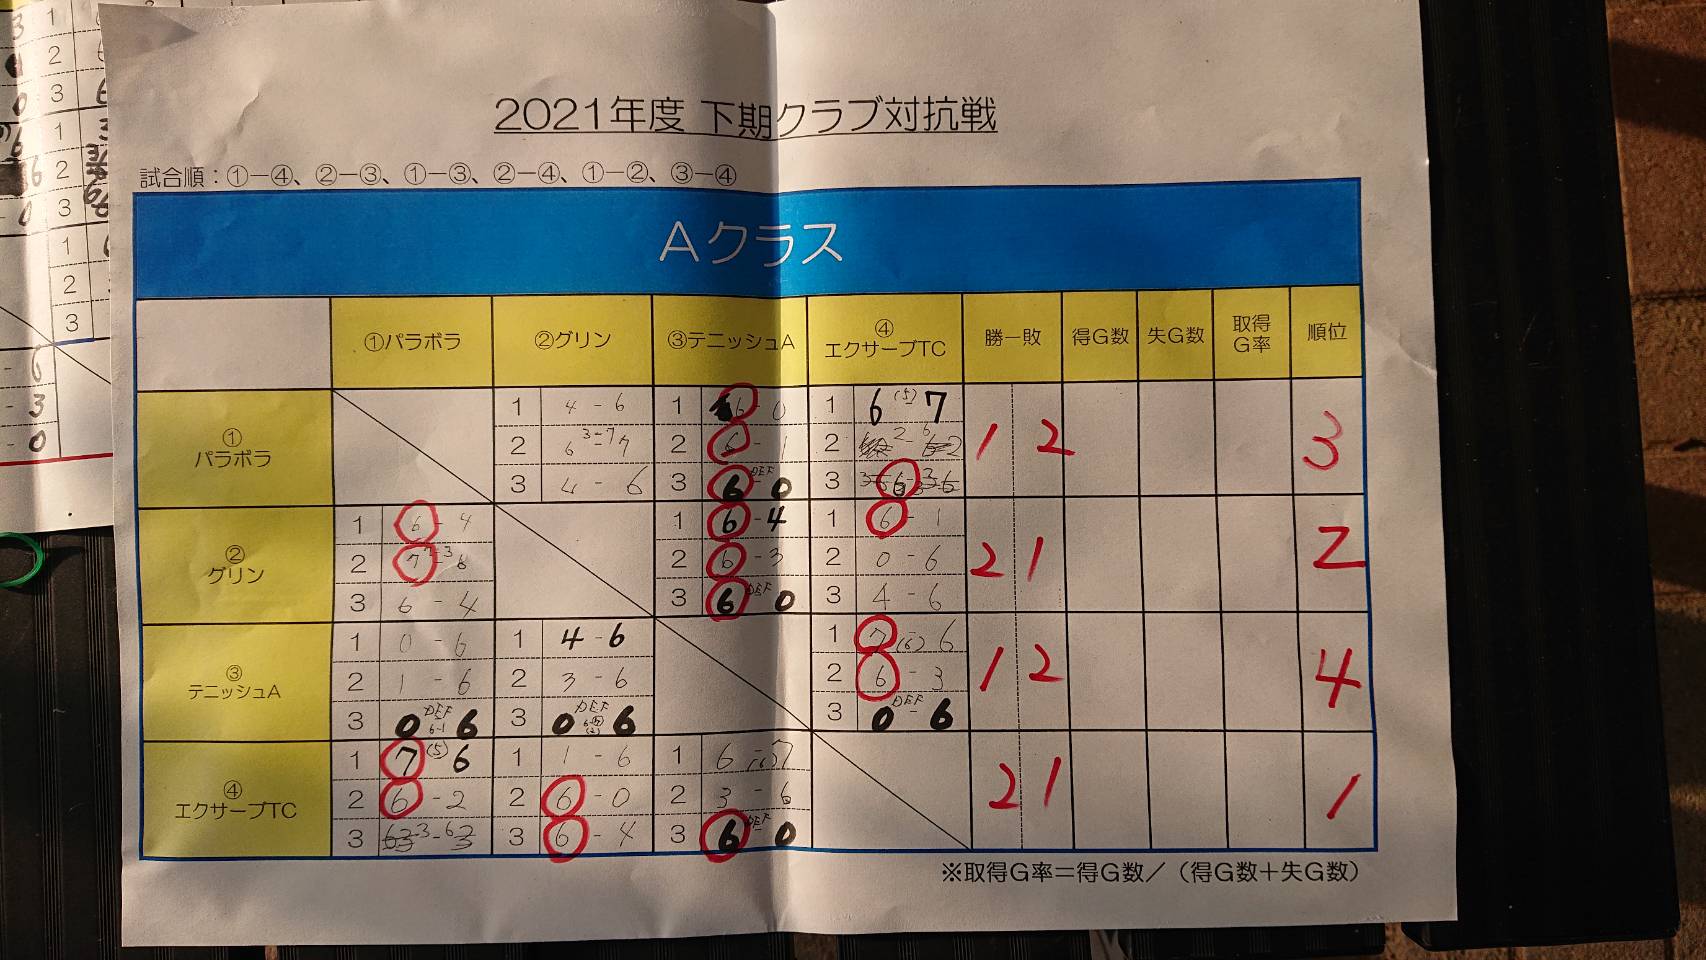 2021年度 下期クラブ対抗戦
試合順：①ー④、②ー③、①ー③、②ー④、①ー②、③ー④
Aクラス
①パラボラ ②グリン ③テニッシュA ④エクサーブTC 勝ー敗 得G数 失G数 取得G率 順位
①パラボラ
1 4-6 1 6-0 1 6(5)7
2 6 3-7 7 2 6-1 2 2-6
3 4-6 3 6 DEF 0 3 6-3
1 2 3
②グリン
1 6-4 1 6-4 1 6-1
2 7 7-3 6 2 6-3 2 0-6
3 6-4 3 6 DEF 0 3 4-6
2 1 2
③テニッシュA
1 0-6 1 4-6 1 7-6
2 1-6 2 3-6 2 6-3
3 0 DEF 6 3 0 DEF 6 3 0 DEF 6
6-1
1 2 4
④エクサーブTC
1 7(5)6 1 1-6 1 6-7
2 6-2 2 6-0 2 3-6
3 3-6 3 6-4 3 6 DEF 0
2 1 1
※取得G率＝得G数／（得G数＋失G数）